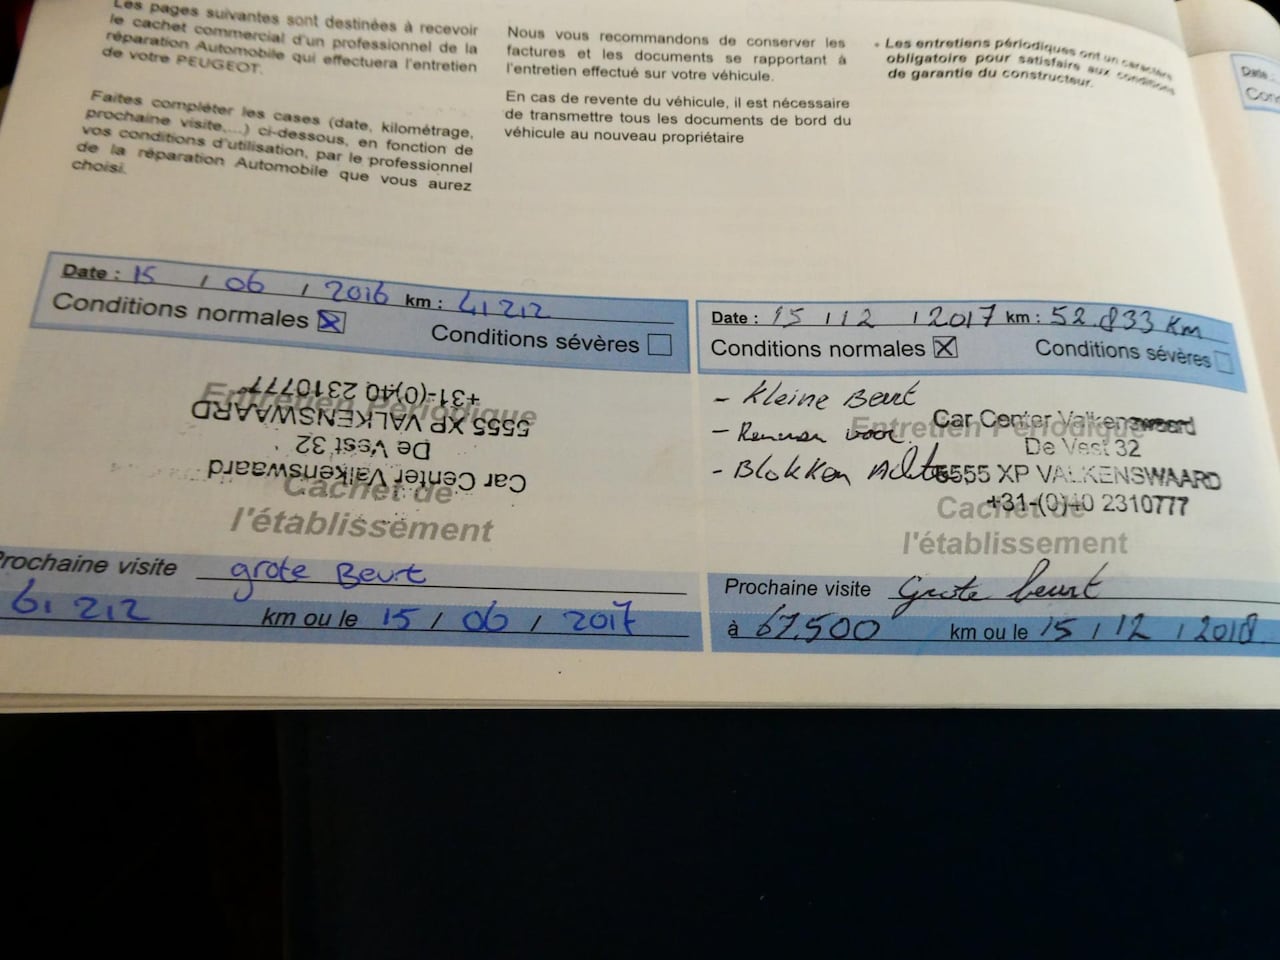 Les pages suivantes sont destinées à recevoir
le cachet commercial d'un professionnel de la
réparation Automobile qui effectuera l'entretien
de votre PEUGEOT.
Faites compléter les cases (date, kilométrage,
prochaine visite,...) ci-dessous, en fonction de
vos conditions d'utilisation, par le professionnel
de la réparation Automobile que vous aurez
choisi.
Nous vous recommandons de conserver les
factures et les documents se rapportant à
l'entretien effectué sur votre véhicule.
En cas de revente du véhicule, il est nécessaire
de transmettre tous les documents de bord du
véhicule au nouveau propriétaire
• Les entretiens périodiques ont un caractère
obligatoire pour satisfaire aux conditions
de garantie du constructeur.
Date :
Con
Date : 15 / 06 / 2016 km : 41 212
Conditions normales
Conditions sévères
Entretien Périodique
Car Center Valkenswaard
De Vest 32
5555 XP VALKENSWAARD
+31-(0)40 2310777
Cachet de
l'établissement
Prochaine visite grote Beurt
61 212 km ou le 15 / 06 / 2017
Date : 15 / 12 / 2017 km : 52.833 Km
Conditions normales
Conditions sévères
- Kleine Beurt
- Remmen voor
- Blokken Achter
Entretien Périodique
Car Center Valkenswaard
De Vest 32
5555 XP VALKENSWAARD
+31-(0)40 2310777
Cachet de
l'établissement
Prochaine visite Grote beurt
à 67.500 km ou le 15 / 12 / 2018